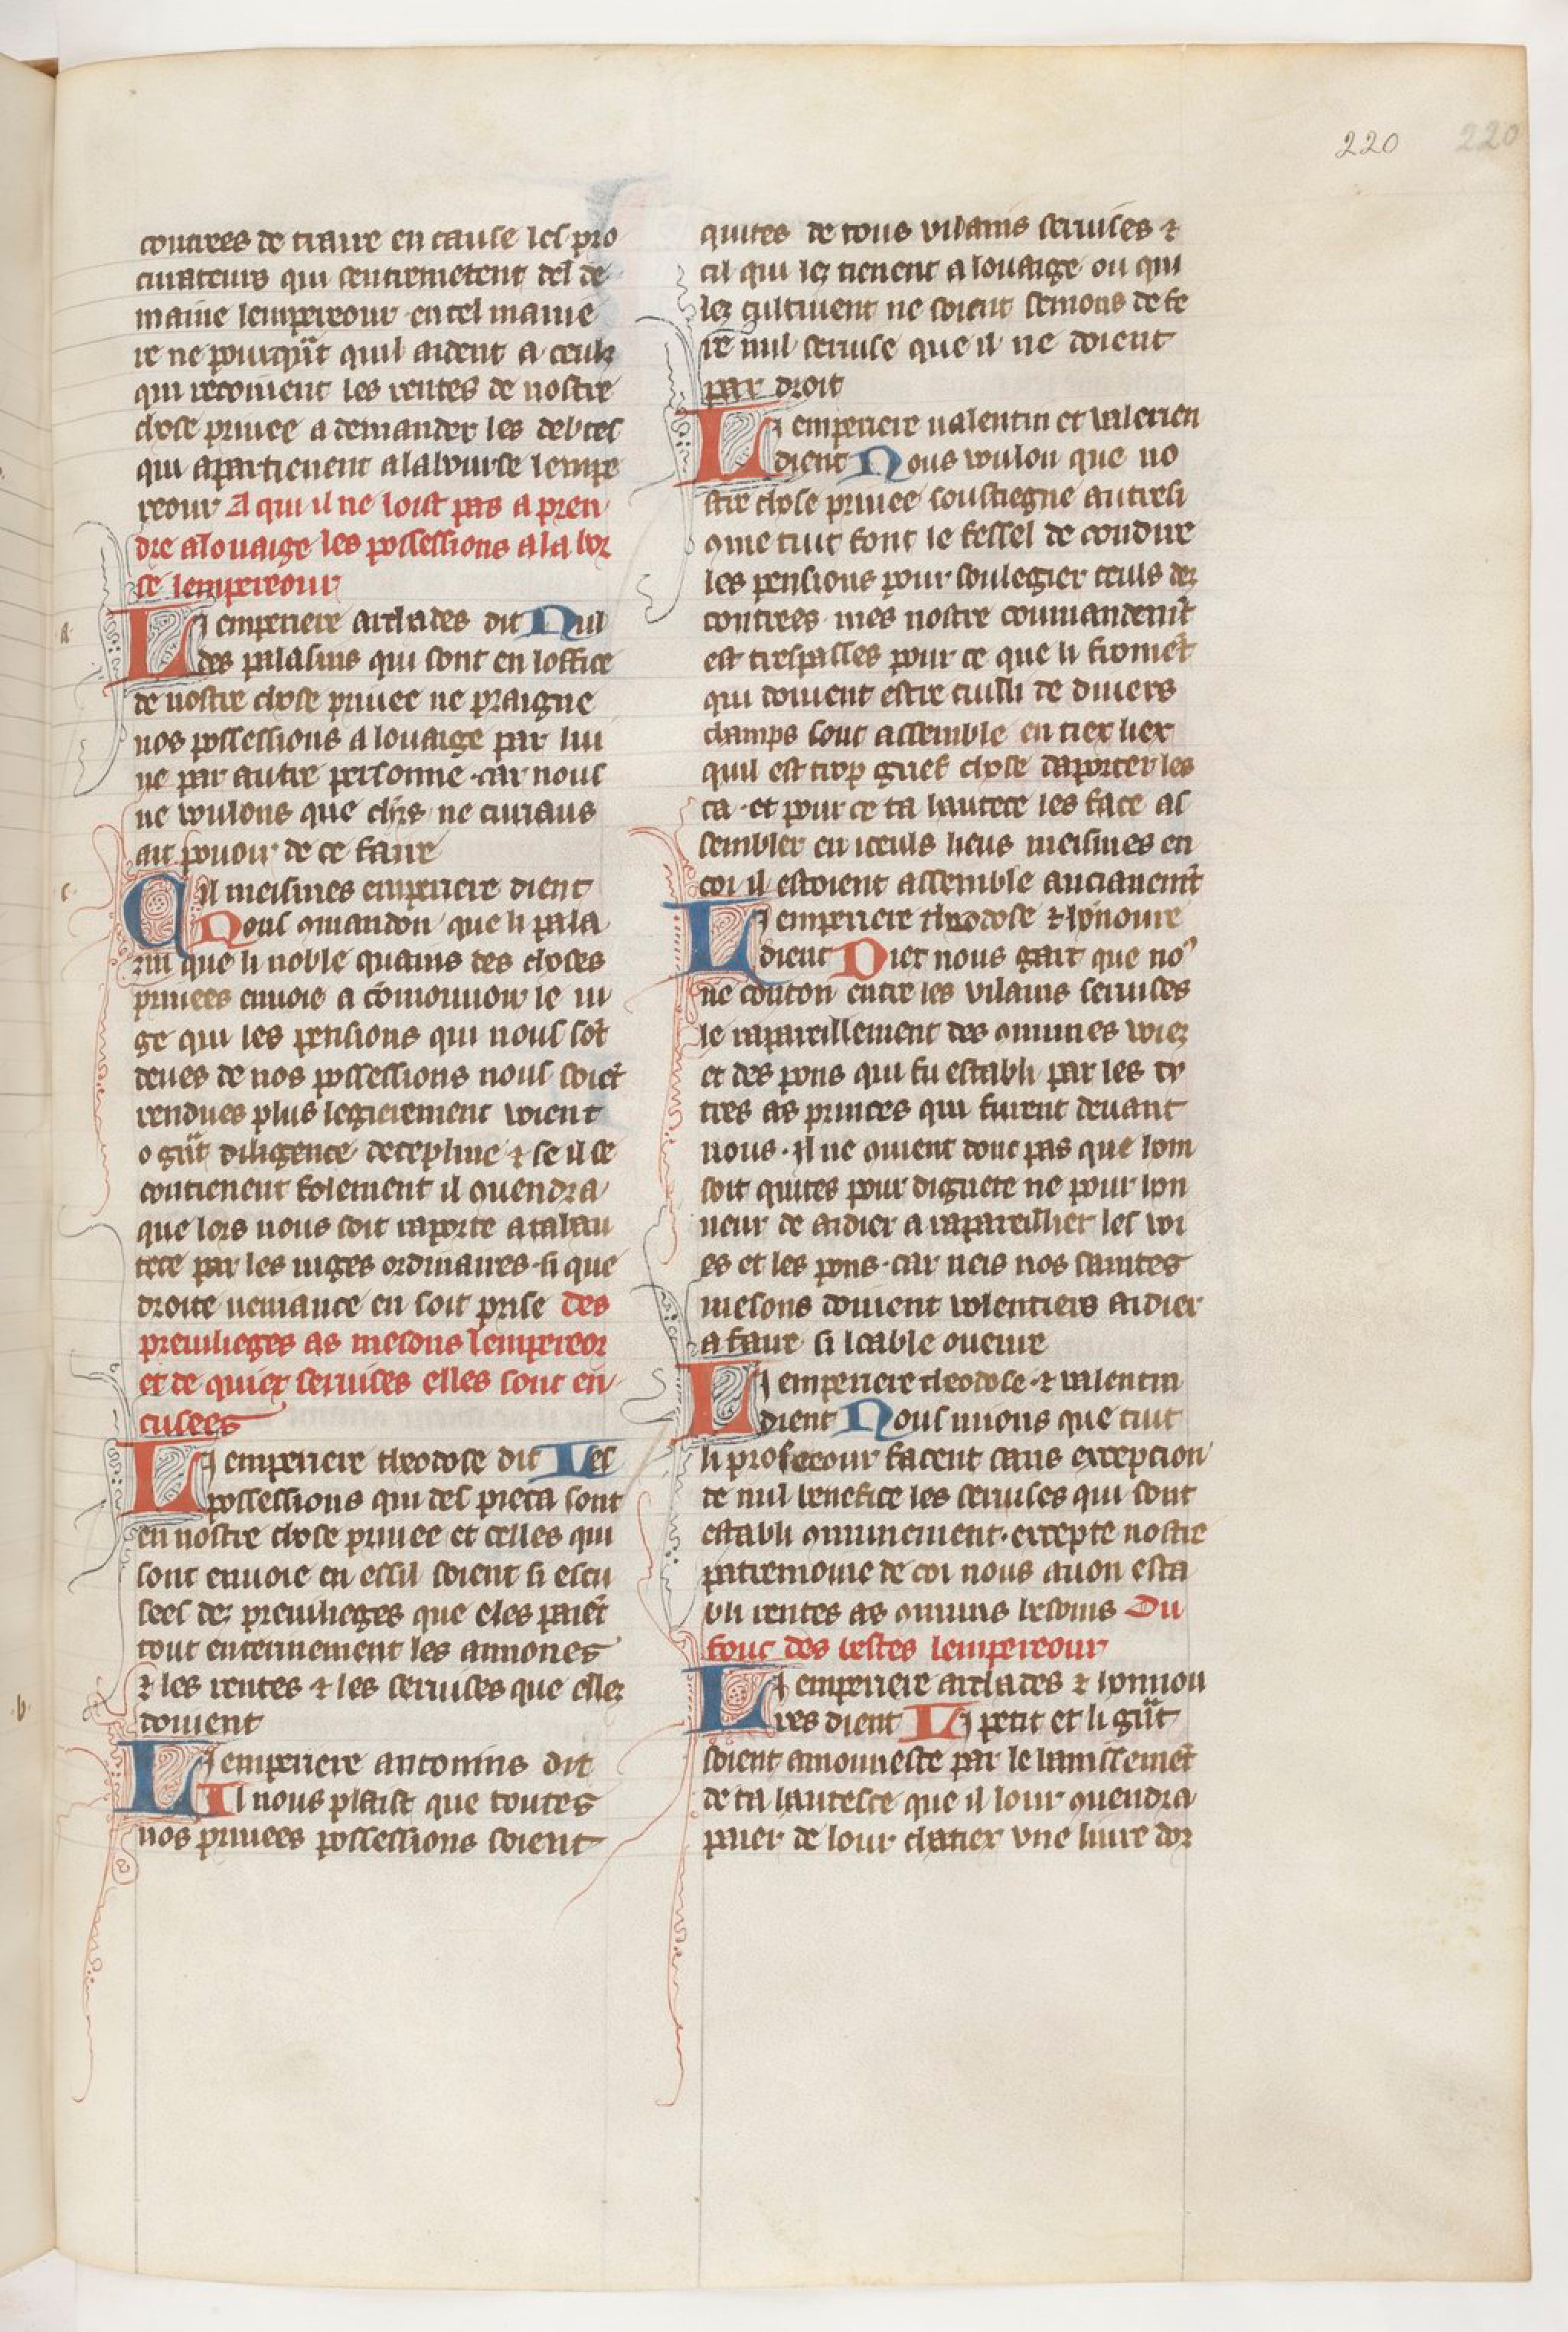 220
220
contrees de traire en cause les pro
curateurs qui sentremetent del de
maine lempereour en tel manie
re ne pourqñt quil aident a ceulz
qui recoiuent les rentes de nostre
chose priuee a demander les debtes
qui apartienent a la bourse lempe
reour A qui il ne loist pas a pren
dre a louaige les possessions a la bor
se lempereour
a
Li emperiere archades dit Nul
des palasins qui sont en loffice
de nostre chose priuee ne praigne
nos possessions a louaige par lui
ne par autre personne car nous
ne voulons que chrs ne curiaus
ait pouoir de ce faire
c
Cil meismes emperiere dient
Nous 9mandon que li pala
zin que li noble quains des choses
priuees enuoie a comouuoir le iu
ge qui les pensions qui nous sōt
deues de nos possessions nous soiēt
rendues plus legierement voient
o gñt diligence decepline ⁊ se il se
contienent folement il 9uendra
que lors nous soit raporte a ta hau
tece par les iuges ordinaires si que
droite ueniance en soit prise des
preuilieges as mesons lempereor
et de quiex seruises elles sont en
cusees
Li emperiere theodose dit Les
possessions qui des pieca sont
en nostre chose priuee et celles qui
sont enuoie en essil soient si escu
sees dez preuilieges que eles paiēt
tout enterinement les annones
⁊ les rentes ⁊ les seruices que ellez
doiuent
b
Li emperiere antonins dit
Il nous plaist que toutes
nos priuees possessions soient
quites de tous vilains seruises ⁊
cil qui lez tienent a louaige ou qui
lez cultiuent ne soient semons de fe
re nul seruise que il ne doient
par droit
Li emperiere ualentin et valerien
dient Nous voulon que no
stre chose priuee soustiegne autresi
9me tuit font le fessel de conduire
les pensions pour soulegier ceuls dez
contrees mes nostre commandemēt
est trespasses pour ce que li fromēt
qui doiuent estre cuilli de diuers
champs sont assemble en tiex liex
quil est trop grief chose daporter les
ca et pour ce ta hautece les face as
sembler en iceuls lieus meismes en
coi il estoient assemble ancianemēt
Li emperiere theodose ⁊ honoure
dient Diex nous gart que no9
ne conton entre les vilains seruises
le rapareillement des 9munes voiez
et des pons qui fu establi par les ti
tres as princes qui furent deuant
nous il ne 9uient donc pas que lom
soit quites pour dignete ne pour hon
neur de aidier a rapareillier les voi
es et les pons car neis nos saintes
mesons doiuent volentiers aidier
a faire si loable oueure
Li emperiere theodose ⁊ valentin
dient Nous uuions que tuit
li professour facent sans excepcion
de nul benefice les seruises qui sont
establi 9munement excepte nostre
patremoine de coi nous auon esta
bli rentes as 9muns besoins Du
fouc des bestes lempereour
Li emperiere archades ⁊ honnou
res dient Li petit et li gñt
soient amoneste par le banissemēt
de ta hautesce que il lour 9uendra
paier de lour chatiex vne liure dor